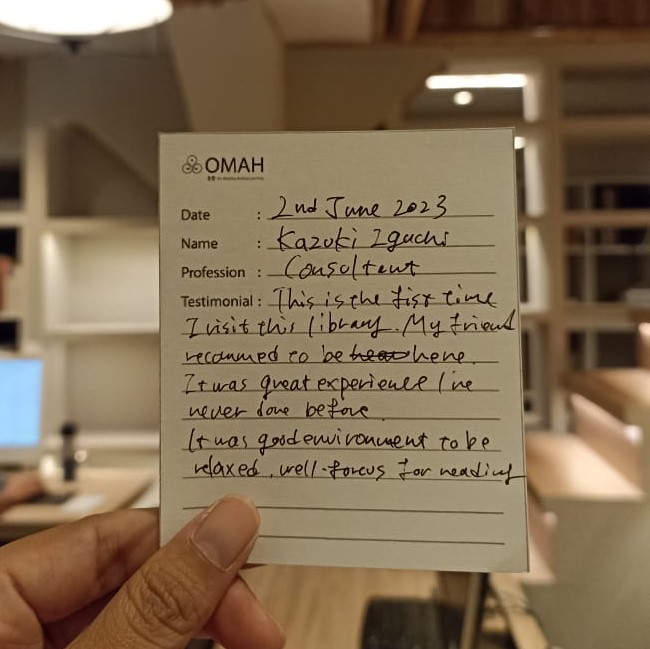 OMAH
Date : 2nd June 2023
Name : Kazuki Iguchi
Profession : Consultent
Testimonial : This is the fisr time
I visit this library. My friend
recommed to be here.
It was great experience I've
never done before
It was good environment to be
relaxed, well-forcus for reading